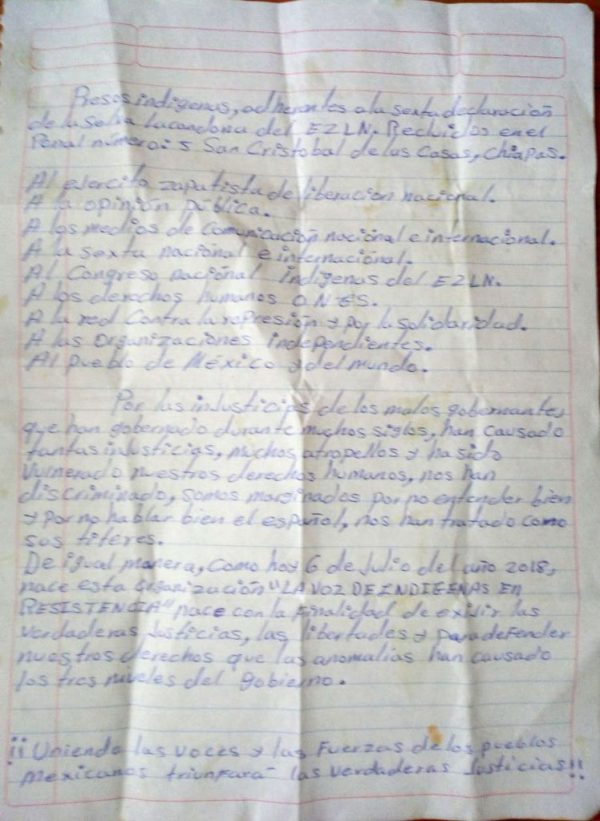 Presos indigenas, adherentes a la sexta declaración
de la Selva Lacandona del EZLN. Recluidos en el
Penal número: 5 San Cristobal de las Casas, Chiapas.
Al ejercito zapatista de liberación nacional.
A la opinión pública.
A los medios de comunicación nacional e internacional.
A la sexta nacional e internacional.
Al Congreso nacional Indigenas del EZLN.
A los derechos humanos O.N.G S.
A la red Contra la represión y por la solidaridad.
A las Organizaciones independientes.
Al pueblo de México y del mundo.
Por las injusticias de los malos gobernantes
que han gobernado durante muchos siglos, han causado
tantas injusticias, muchos atropellos y ha sido
Vulnerado nuestros derechos humanos, nos han
discriminado, somos marginados por no entender bien
y por no hablar bien el español, nos han tratado como
sus titeres.
De igual manera, Como hoy 6 de Julio del año 2018,
nace esta organización "LA VOZ DE INDIGENAS EN
RESISTENCIA" nace con la finalidad de exijir las
verdaderas Justicias, las libertades y para defender
nuestros derechos que las anomalias han causado
los tres niveles del gobierno.
¡¡Uniendo las voces y las Fuerzas de los pueblos
Mexicanos triunfará las verdaderas Justicias!!